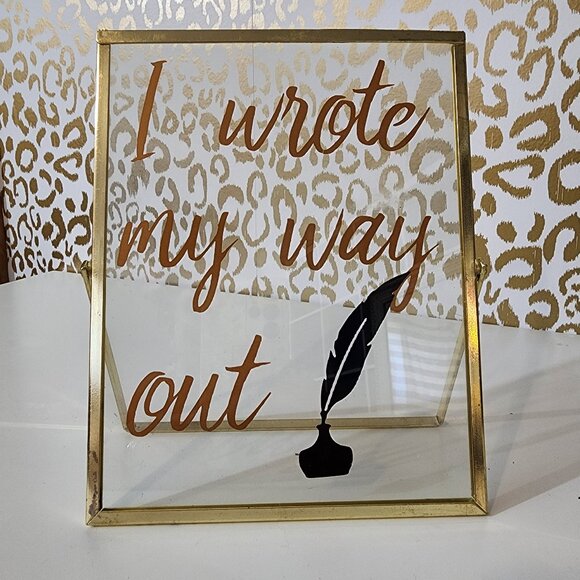 I wrote
my way
out